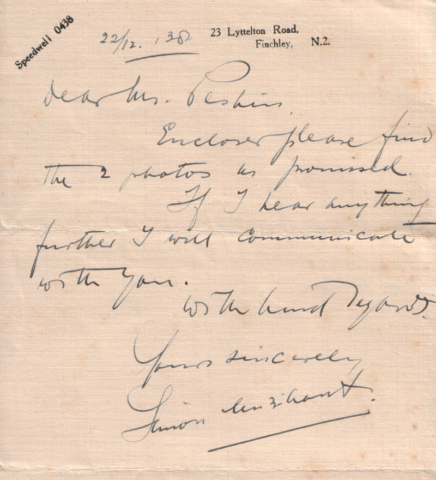 Speedwell 0438
23 Lyttelton Road,
Finchley, N.2.
22/12. '38
Dear Mr.
Enclosed please find
the 2 photos as promised.
If I hear anything
further I will communicate
with you.
With kind regards.
Yours sincerely
Simon